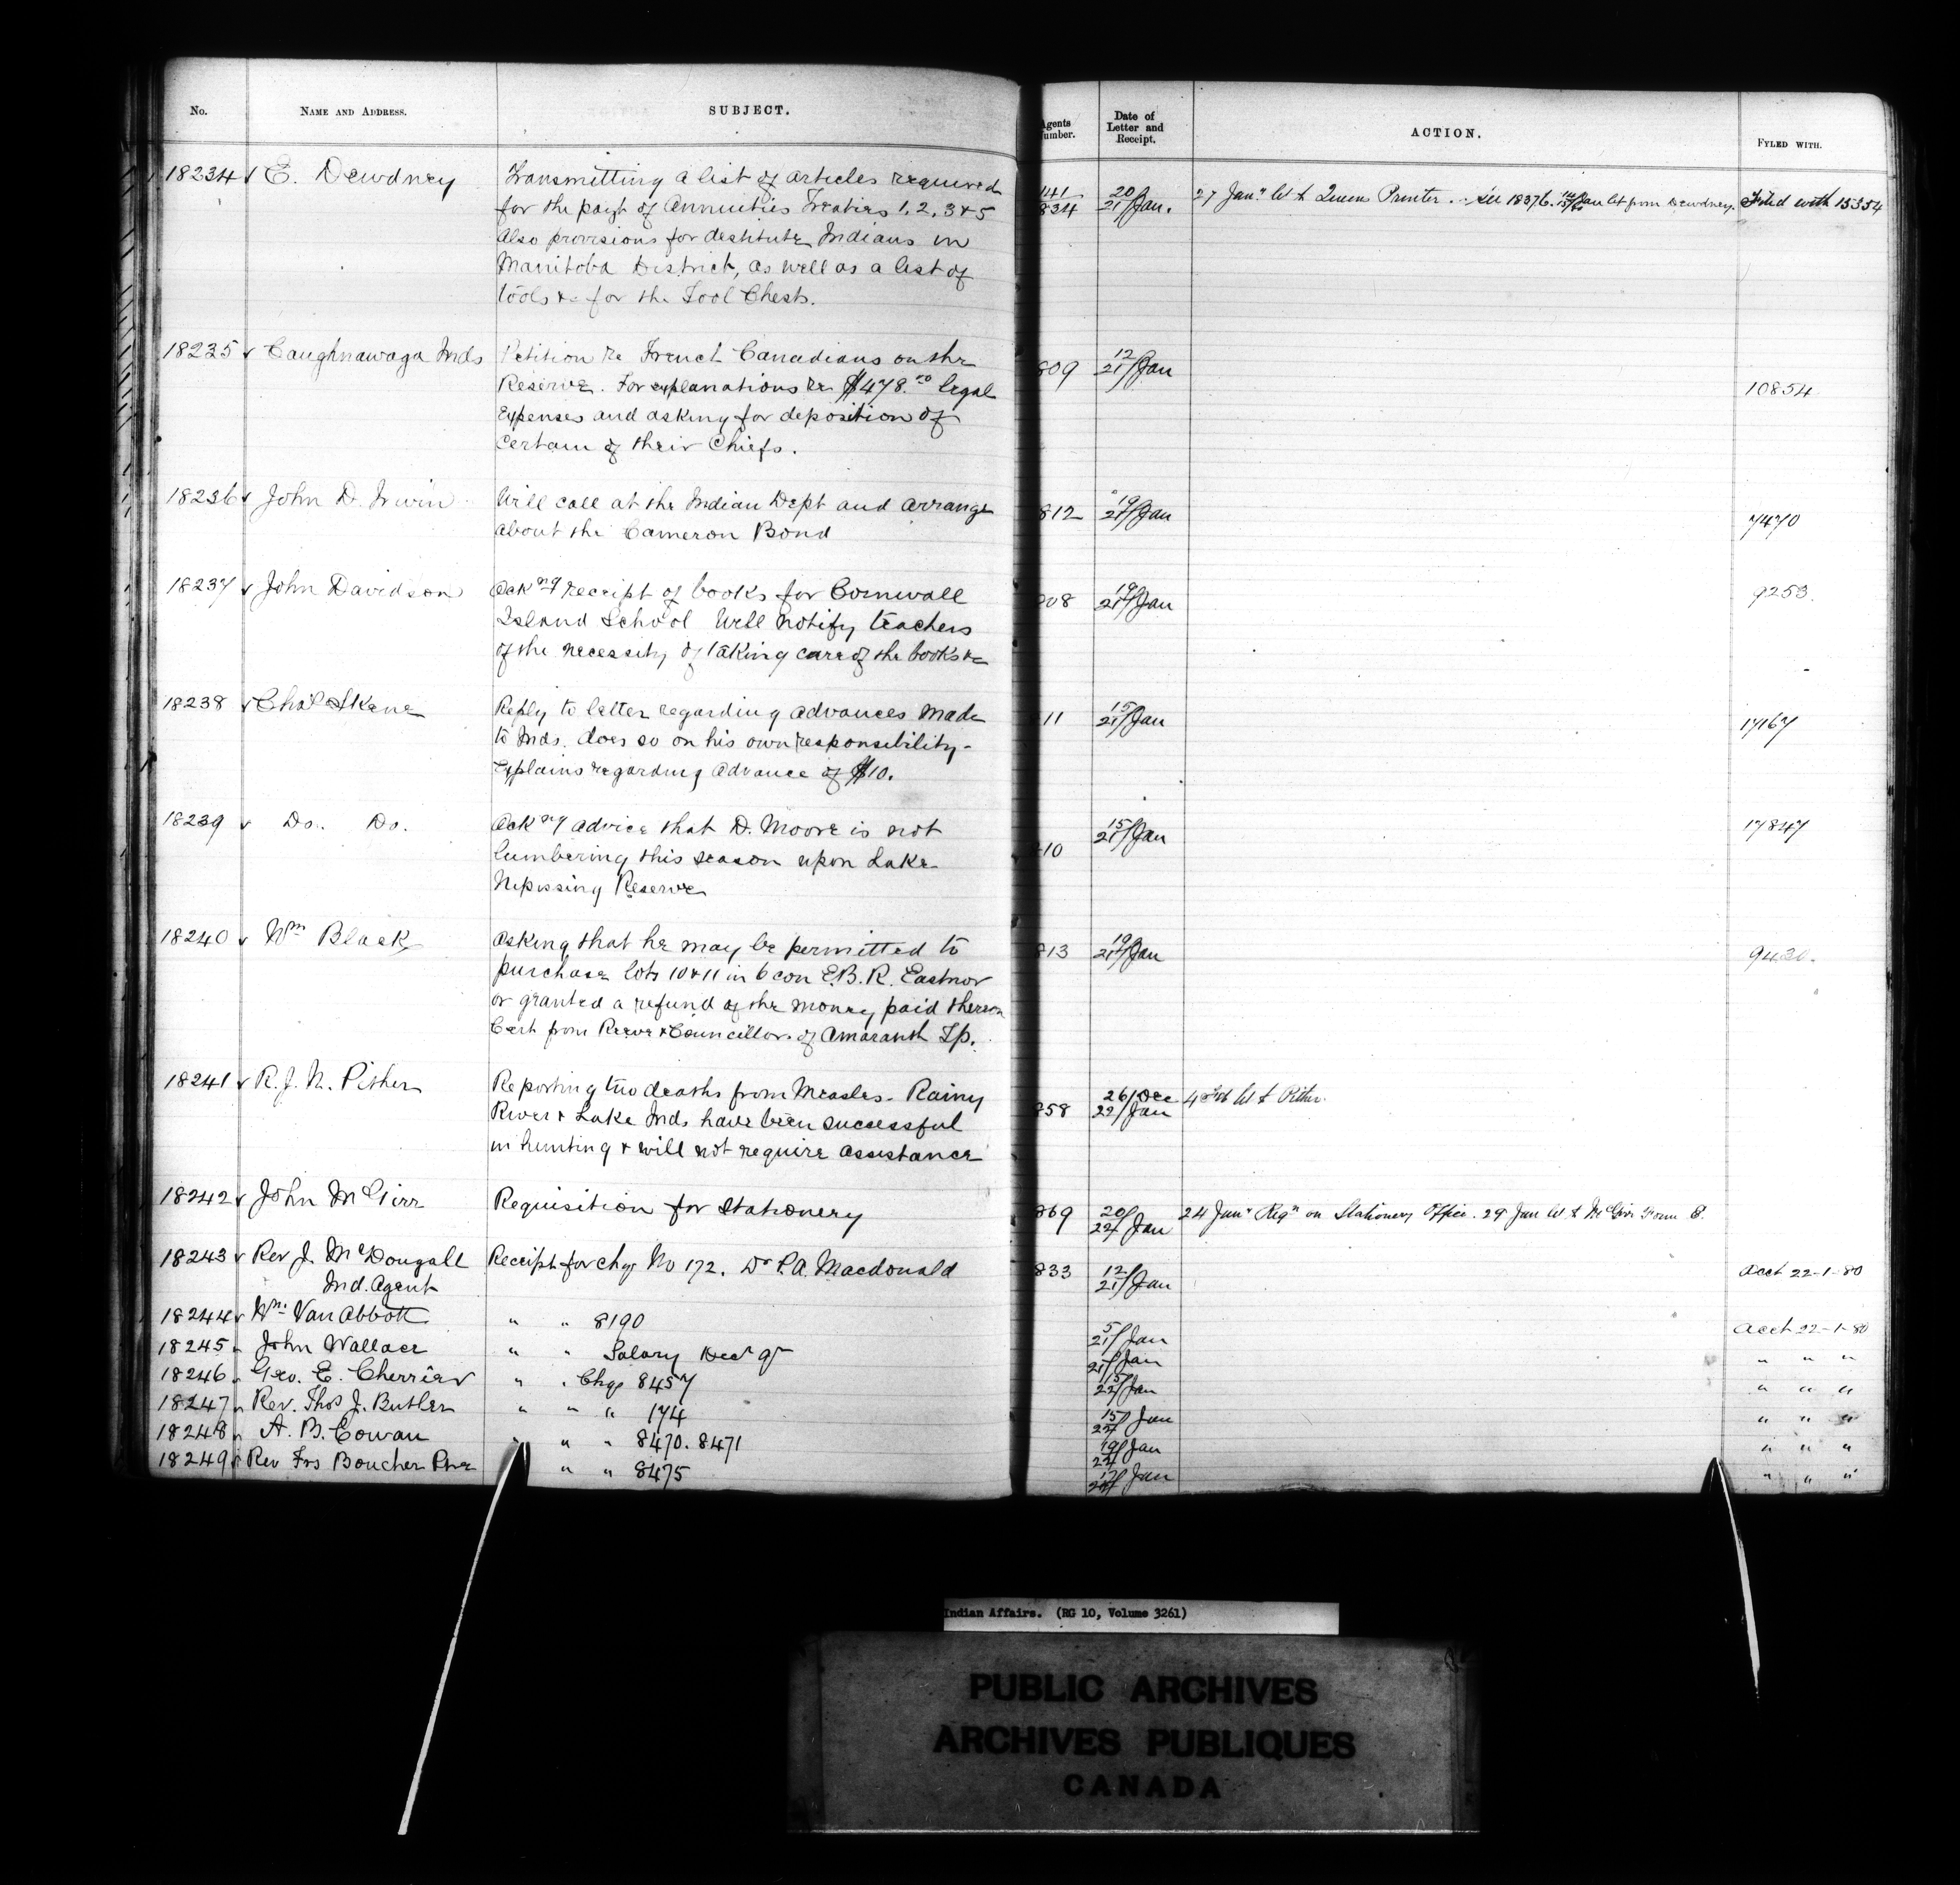 No. NAME AND ADDRESS. SUBJECT. Agents Number. Date of Letter and Receipt. ACTION. FYLED WITH.
18234 E. Dewdney Transmitting a list of articles required 141 834 20/21 Jan. 27 Jany let to Queens Printer. See 18376. Jan let from Dewdney. Filed with 15354
for the payt of Annuities Treaties 1, 2, 3 & 5
Also provisions for destitute Indians in
Manitoba District, as well as a list of
tools &c for the Tool Chests.
18235 Caughnawaga Inds Petition re French Canadians on the 809 12/21 Jan 10854
Reserve. For explanations re $478.00 legal
expenses and asking for deposition of
certain of their Chiefs.
18236 John D. Irwin Will call at the Indian Dept and arrange 812 19/21 Jan 7470
about the Cameron Bond
18237 John Davidson Ackng receipt of books for Cornwall 08 19/21 Jan 9253.
Island School Will notify teachers
of the necessity of taking care of the books &c
18238 Chas Skene Reply to letter regarding advances made 11 15/21 Jan 17167
to Inds. does so on his own responsibility-
Explains regarding advance of $10.
18239 Do. Do. Ackng advice that D. Moore is not 10 15/21 Jan 17847
lumbering this season upon Lake
Nipissing Reserve
18240 Wm Black Asking that he may be permitted to 813 19/21 Jan 9430.
purchase lots 10 & 11 in 6 con E.B.R. Eastnor
or granted a refund of the money paid thereon
Cert from Reeve & Councillor of Amaranth Tp.
18241 R. J. N. Pither Reporting two deaths from Measles. Rainy 858 26/Dec 22/Jan 4 Feb let to Pither.
River & Lake Inds have been successful
in hunting & will not require assistance
18242 John McGirr Requisition for Stationery 869 20/22 Jan 24 Jany Reqn on Stationery Office. 29 Jan let to McGirr Form B.
18243 Rev J. McDougall Receipt for chq No 172. Dr P.A. Macdonald 833 12/21 Jan Acct 22-1-80
Ind. Agent
18244 Wm. Van Abbott " " 8190 5/21 Jan Acct 22-1-80
18245 John Wallace " " Salary Decr qr 21/Jan " " "
18246 Geo. E. Cherrier " " Chq 8457 15/22 Jan " " "
18247 Rev. Thos J. Butler " " " 174 15/22 Jan " " "
18248 A. B. Cowan " " " 8470. 8471 19/22 Jan " " "
18249 Rev Frs Boucher " " 8475 17/22 Jan " " "
Indian Affairs. (RG 10, Volume 3261)
PUBLIC ARCHIVES
ARCHIVES PUBLIQUES
CANADA